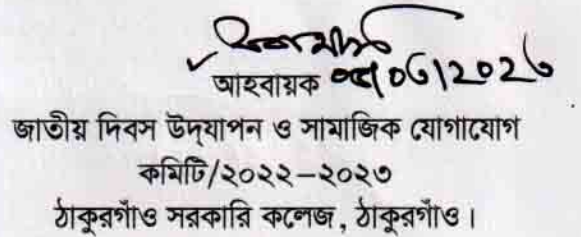 আহবায়ক
জাতীয় দিবস উদ্‌যাপন ও সামাজিক যোগাযোগ
কমিটি/২০২২–২০২৩
ঠাকুরগাঁও সরকারি কলেজ, ঠাকুরগাঁও।